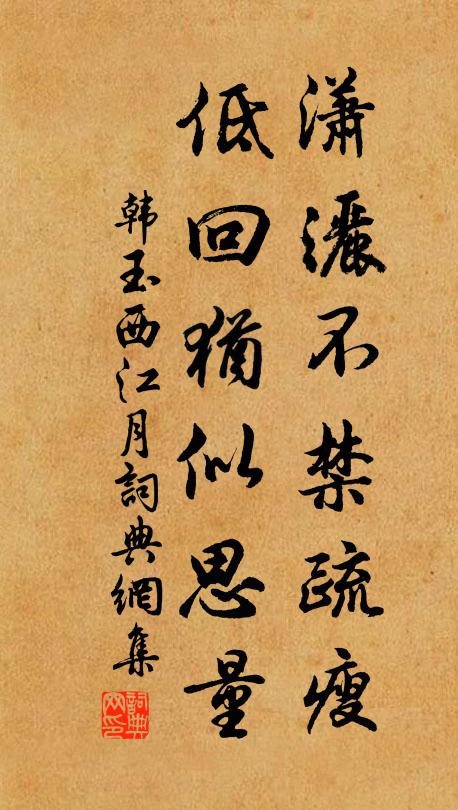 瀟灑不禁疏瘦
低回猶似思量
韩玉西江月詞典網集
詞典网印